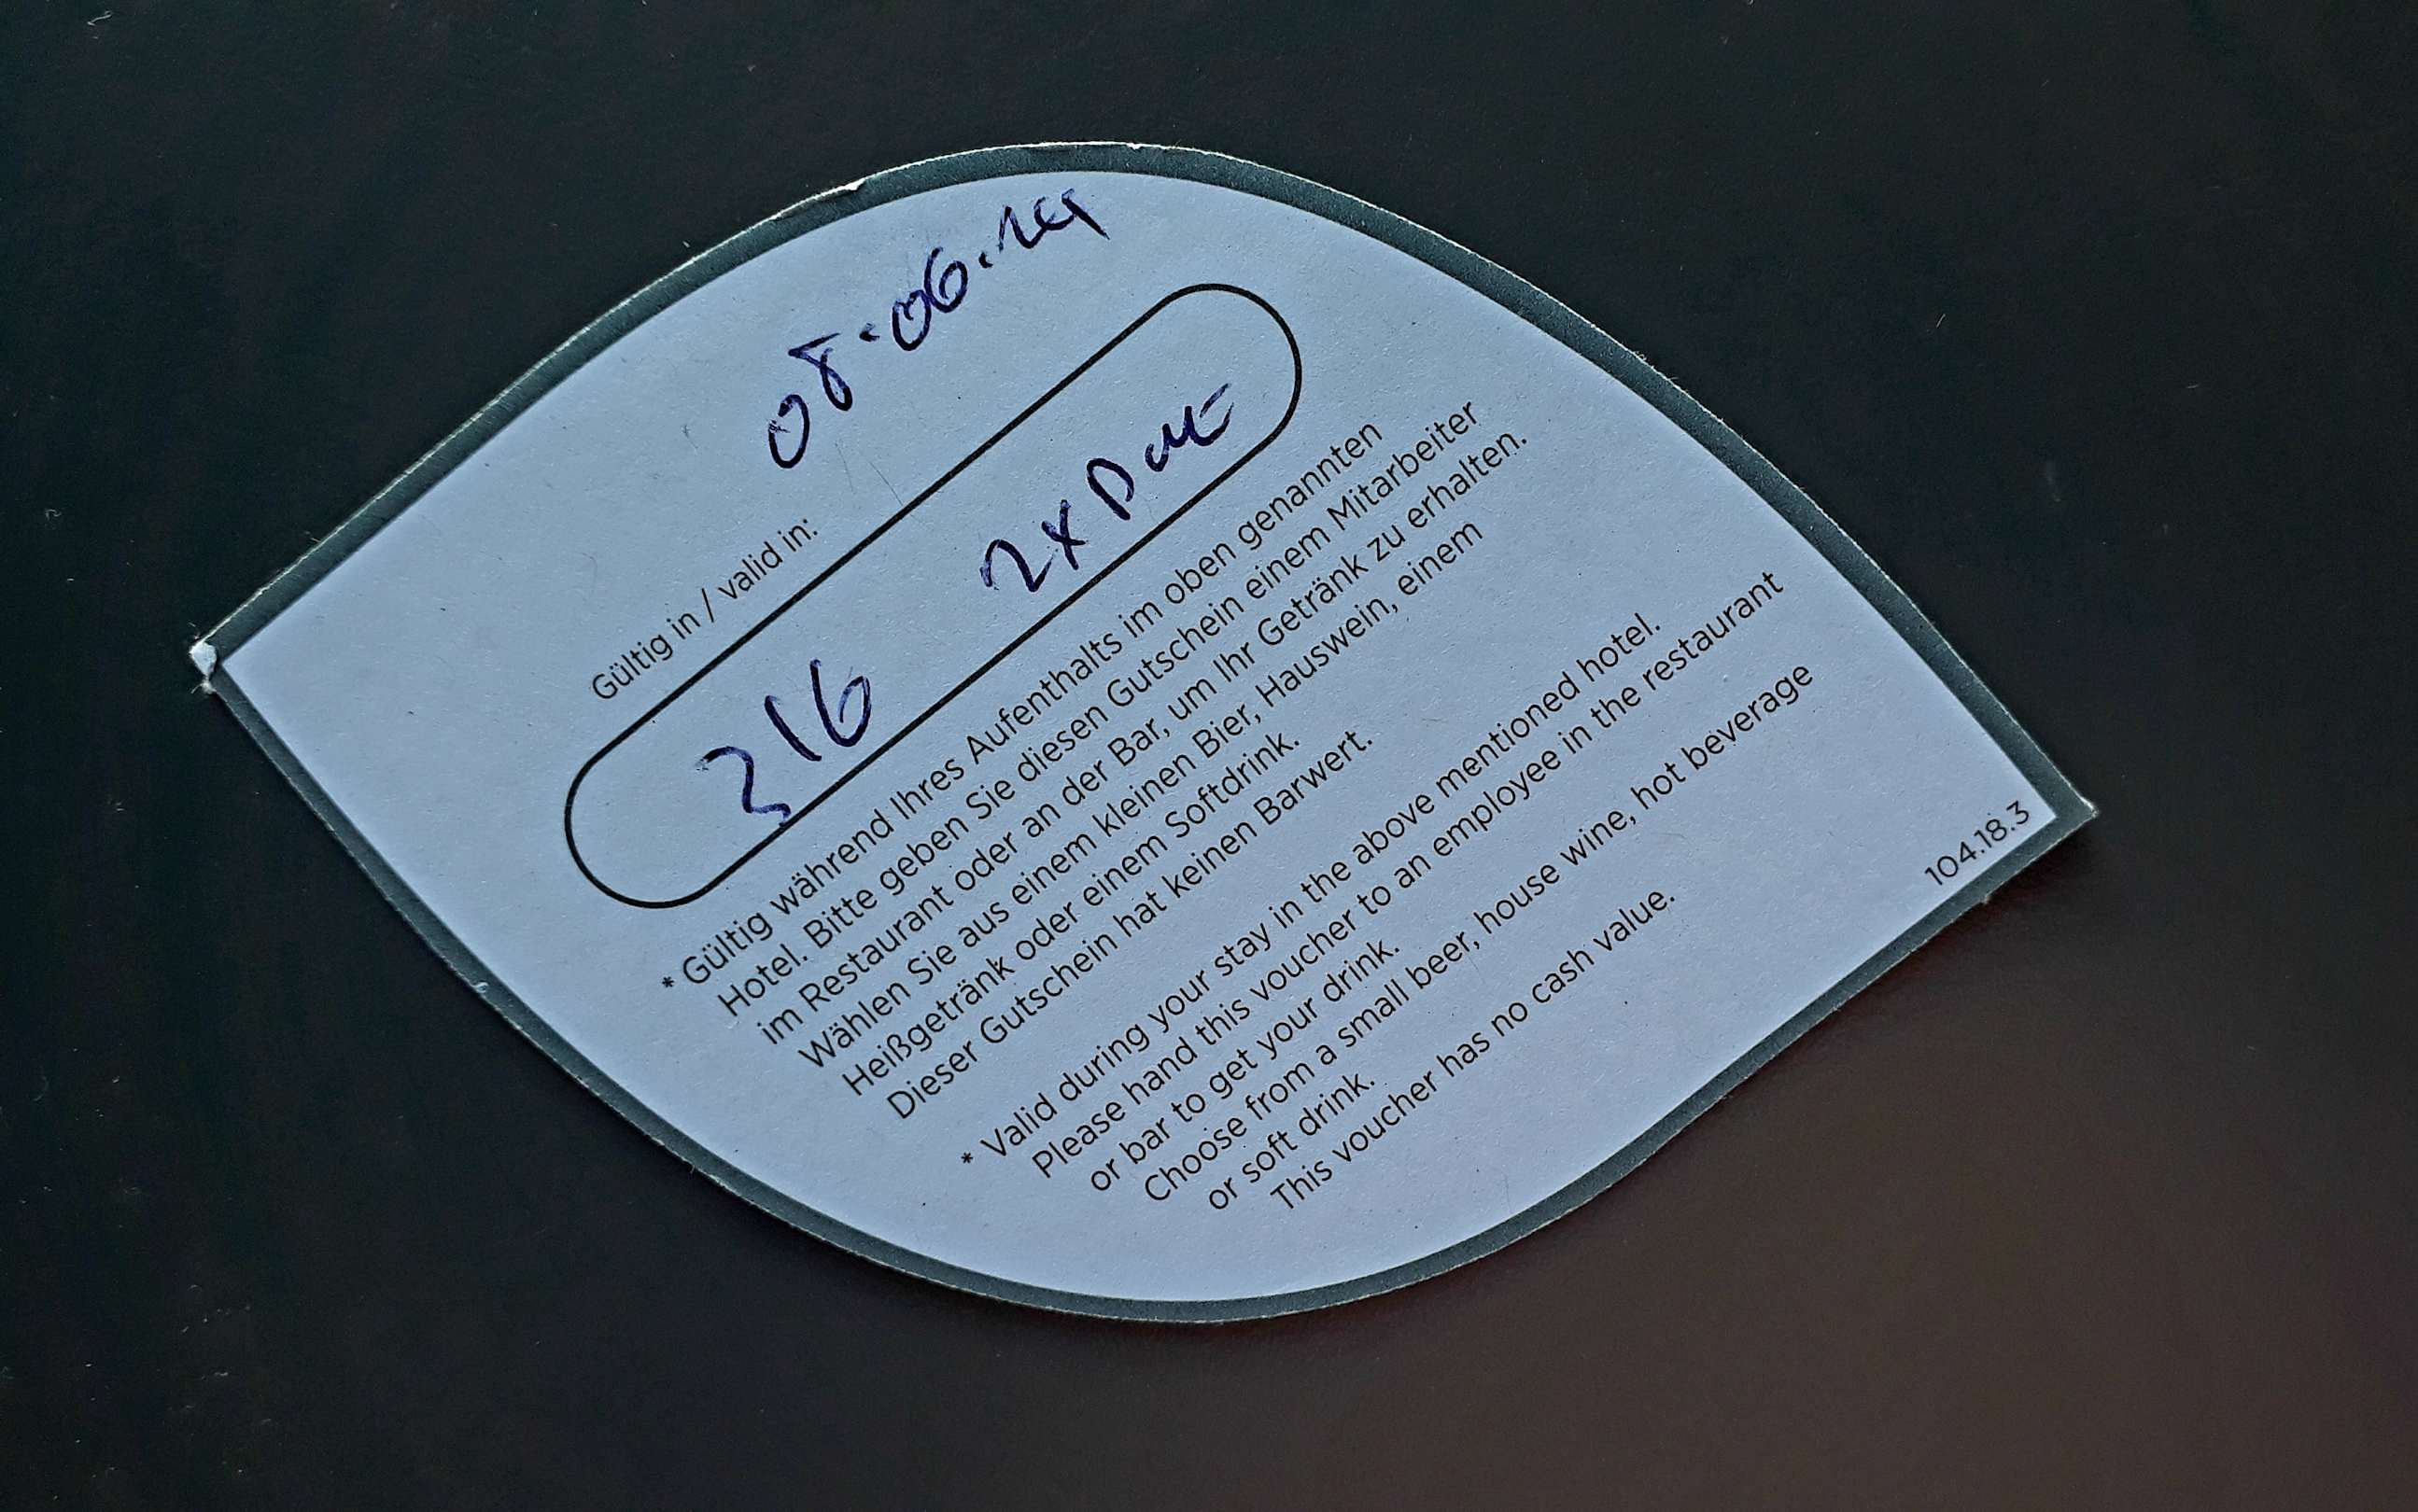 08.06.24
Gültig in / valid in:
316 2x
* Gültig während Ihres Aufenthalts im oben genannten
Hotel. Bitte geben Sie diesen Gutschein einem Mitarbeiter
im Restaurant oder an der Bar, um Ihr Getränk zu erhalten.
Wählen Sie aus einem kleinen Bier, Hauswein, einem
Heißgetränk oder einem Softdrink.
Dieser Gutschein hat keinen Barwert.
* Valid during your stay in the above mentioned hotel.
Please hand this voucher to an employee in the restaurant
or bar to get your drink.
Choose from a small beer, house wine, hot beverage
or soft drink.
This voucher has no cash value.
104.18.3